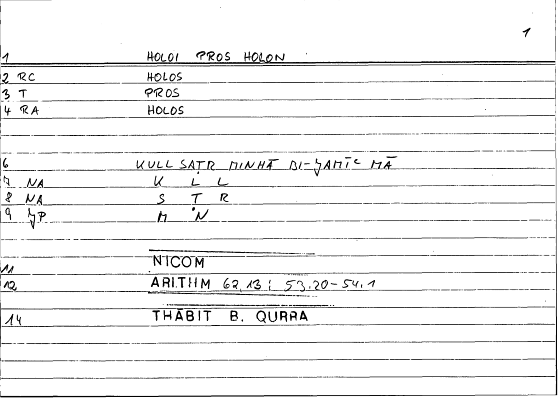 1
1 HOLOI PROS HOLON
2 RC HOLOS
3 T PROS
4 RA HOLOS
6 KULL SAṬR MINHĀ BI-ǦAMĪʿ MĀ
7 NA K L L
8 NA S Ṭ R
9 ǦP M N
11 NICOM
12 ARITHM 62,13 ; 53.20-54.1
14 THĀBIT B. QURRA